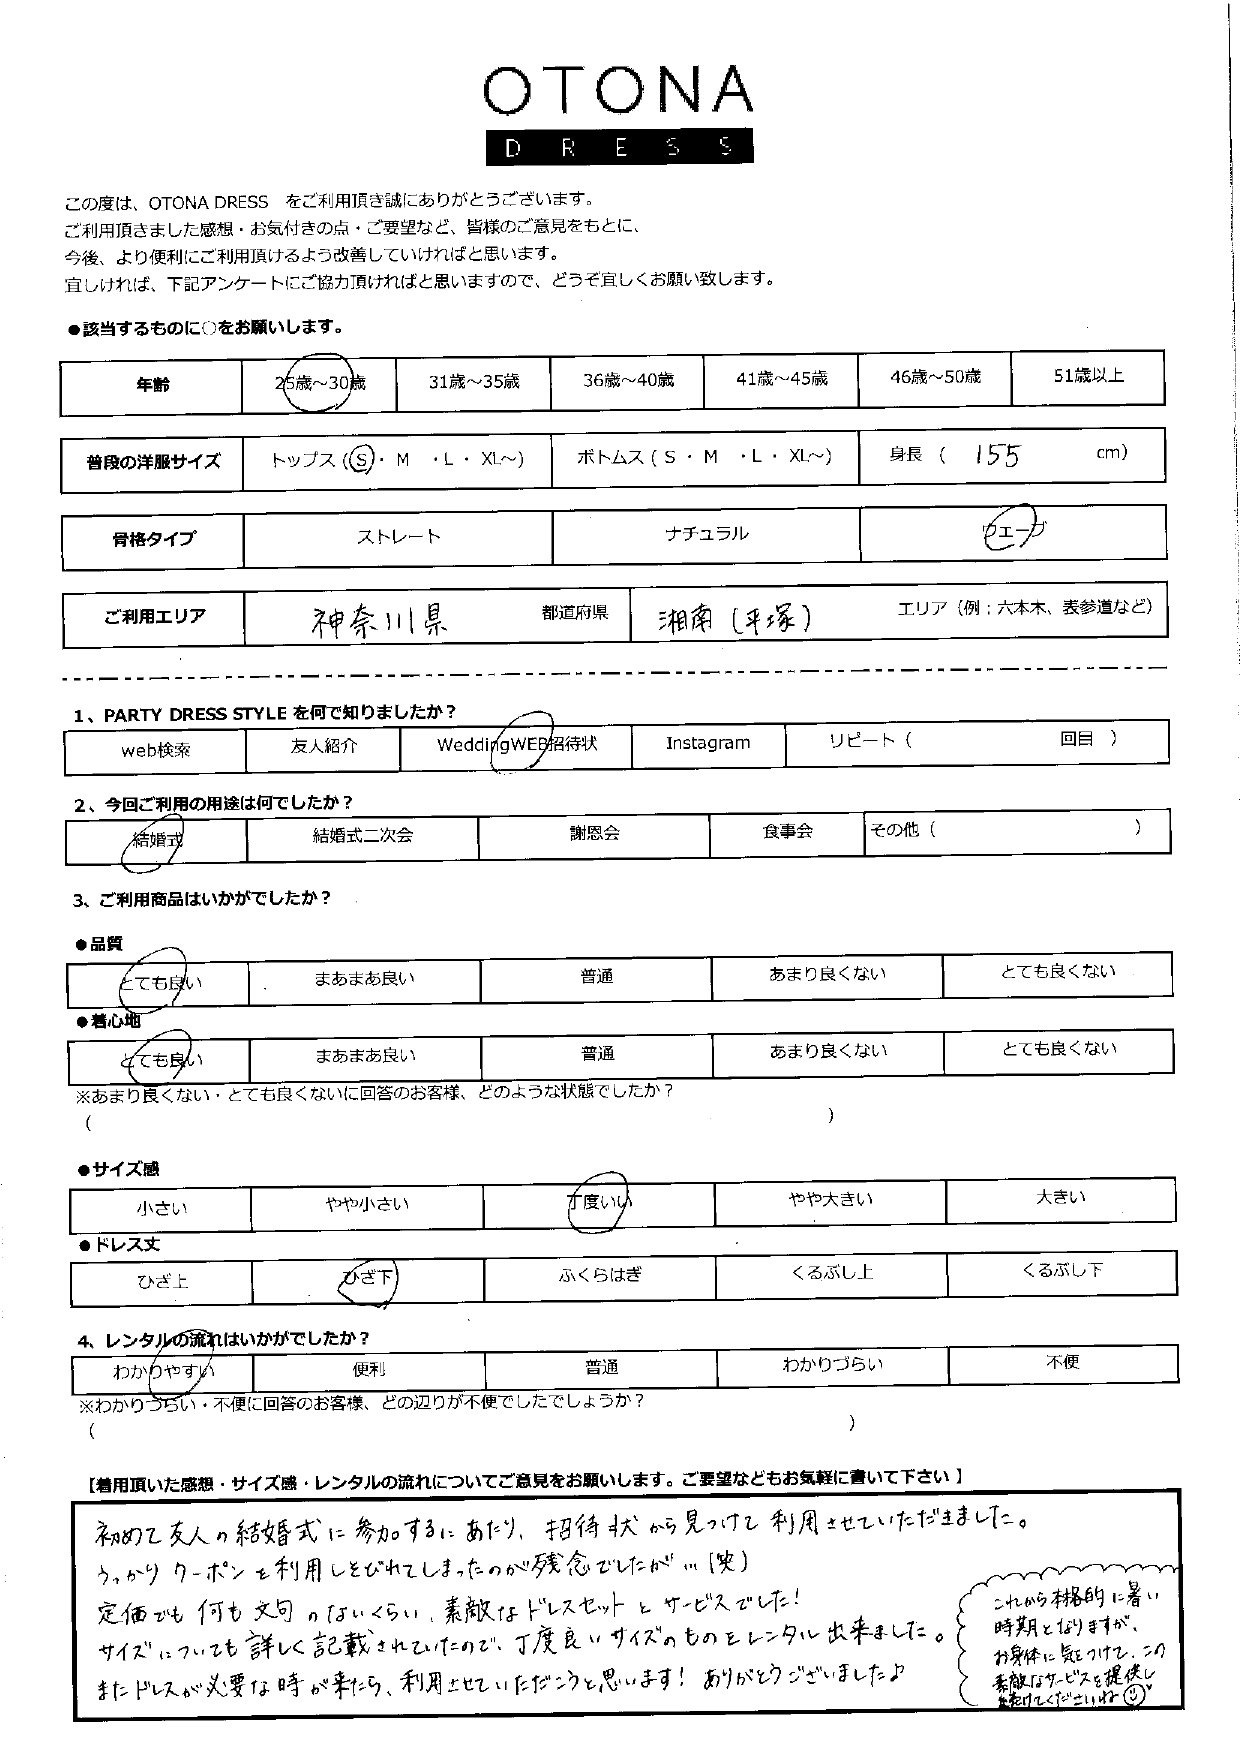 OTONA
DRESS
この度は、OTONA DRESS をご利用頂き誠にありがとうございます。
ご利用頂きました感想・お気付きの点・ご要望など、皆様のご意見をもとに、
今後、より便利にご利用頂けるよう改善していければと思います。
宜しければ、下記アンケートにご協力頂ければと思いますので、どうぞ宜しくお願い致します。
●該当するものに○をお願いします。
年齢 25歳～30歳 31歳～35歳 36歳～40歳 41歳～45歳 46歳～50歳 51歳以上
普段の洋服サイズ トップス (S・ M ・L ・ XL～) ボトムス ( S ・ M ・L ・ XL～) 身長 ( 155 cm)
骨格タイプ ストレート ナチュラル ウエーブ
ご利用エリア 神奈川県 都道府県 湘南 (平塚) エリア（例；六本木、表参道など）
1、PARTY DRESS STYLE を何で知りましたか？
web検索 友人紹介 WeddingWEB招待状 Instagram リピート（ 回目 ）
2、今回ご利用の用途は何でしたか？
結婚式 結婚式二次会 謝恩会 食事会 その他（ ）
3、ご利用商品はいかがでしたか？
●品質
とても良い まあまあ良い 普通 あまり良くない とても良くない
●着心地
とても良い まあまあ良い 普通 あまり良くない とても良くない
※あまり良くない・とても良くないに回答のお客様、どのような状態でしたか？
( )
●サイズ感
小さい やや小さい 丁度いい やや大きい 大きい
●ドレス丈
ひざ上 ひざ下 ふくらはぎ くるぶし上 くるぶし下
4、レンタルの流れはいかがでしたか？
わかりやすい 便利 普通 わかりづらい 不便
※わかりづらい・不便に回答のお客様、どの辺りが不便でしたでしょうか？
( )
【着用頂いた感想・サイズ感・レンタルの流れについてご意見をお願いします。ご要望などもお気軽に書いて下さい 】
初めて友人の結婚式に参加するにあたり、招待状から見つけて利用させていただきました。
うっかりクーポンを利用しそびれてしまったのが残念でしたが…(笑)
定価でも何も文句のないくらい、素敵なドレスセットとサービスでした！
サイズについても詳しく記載されていたので、丁度良いサイズのものをレンタル出来ました。
またドレスが必要な時が来たら、利用させていただこうと思います！ ありがとうございました♪
これから本格的に暑い
時期となりますが、
お身体に気をつけて、この
素敵なサービスを提供し
続けてくださいね